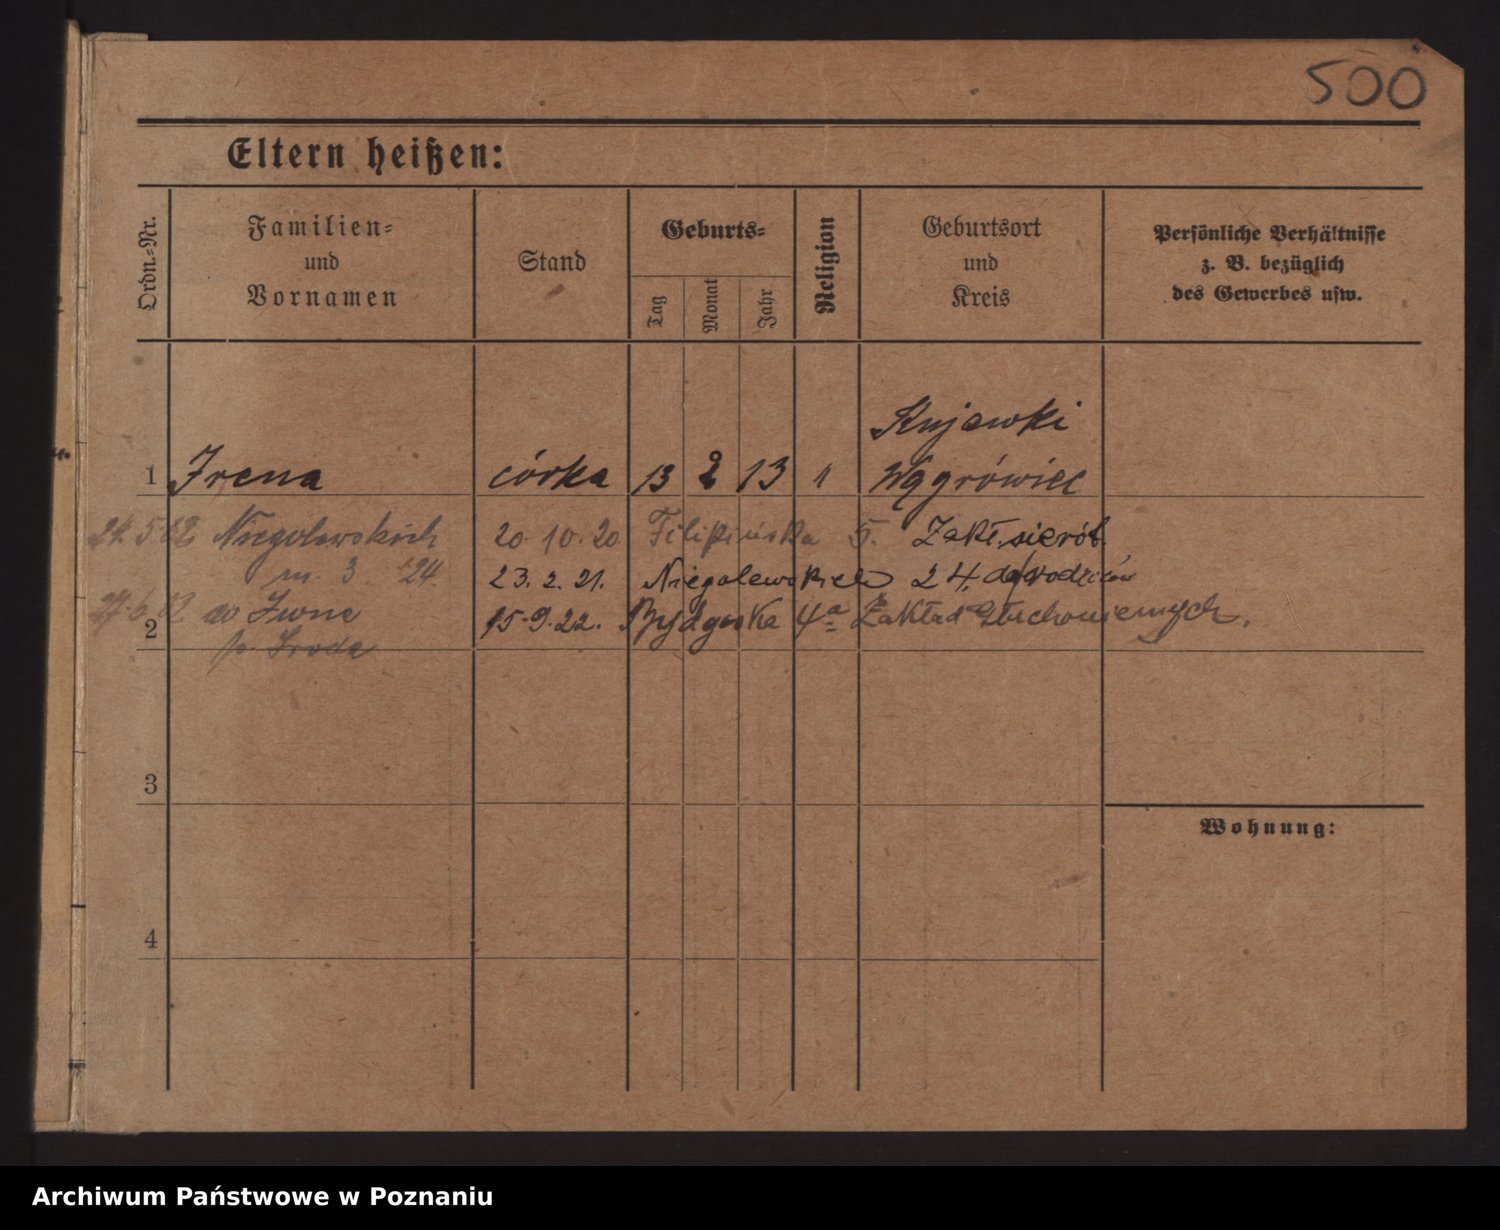 500
Eltern heißen:
Ordn.-Nr.
Familien- und Vornamen
Stand
Geburts-
Tag
Monat
Jahr
Religion
Geburtsort und Kreis
Persönliche Verhältnisse
z. B. bezüglich
des Gewerbes usw.
Kujawki
1 Irena córka 13 2 13 Wągrówiec
24.5.22 Niegolewskich 20. 10. 20 Filipińska 5. Zakł. sierót
m. 3 24. 23. 2. 21. Niegolewskich 24. do rodziców
2 Iwno 15. 9. 22. Bydgoska 4a Zakład Głuchoniemych.
p. Środa
3
Wohnung:
4
Archiwum Państwowe w Poznaniu